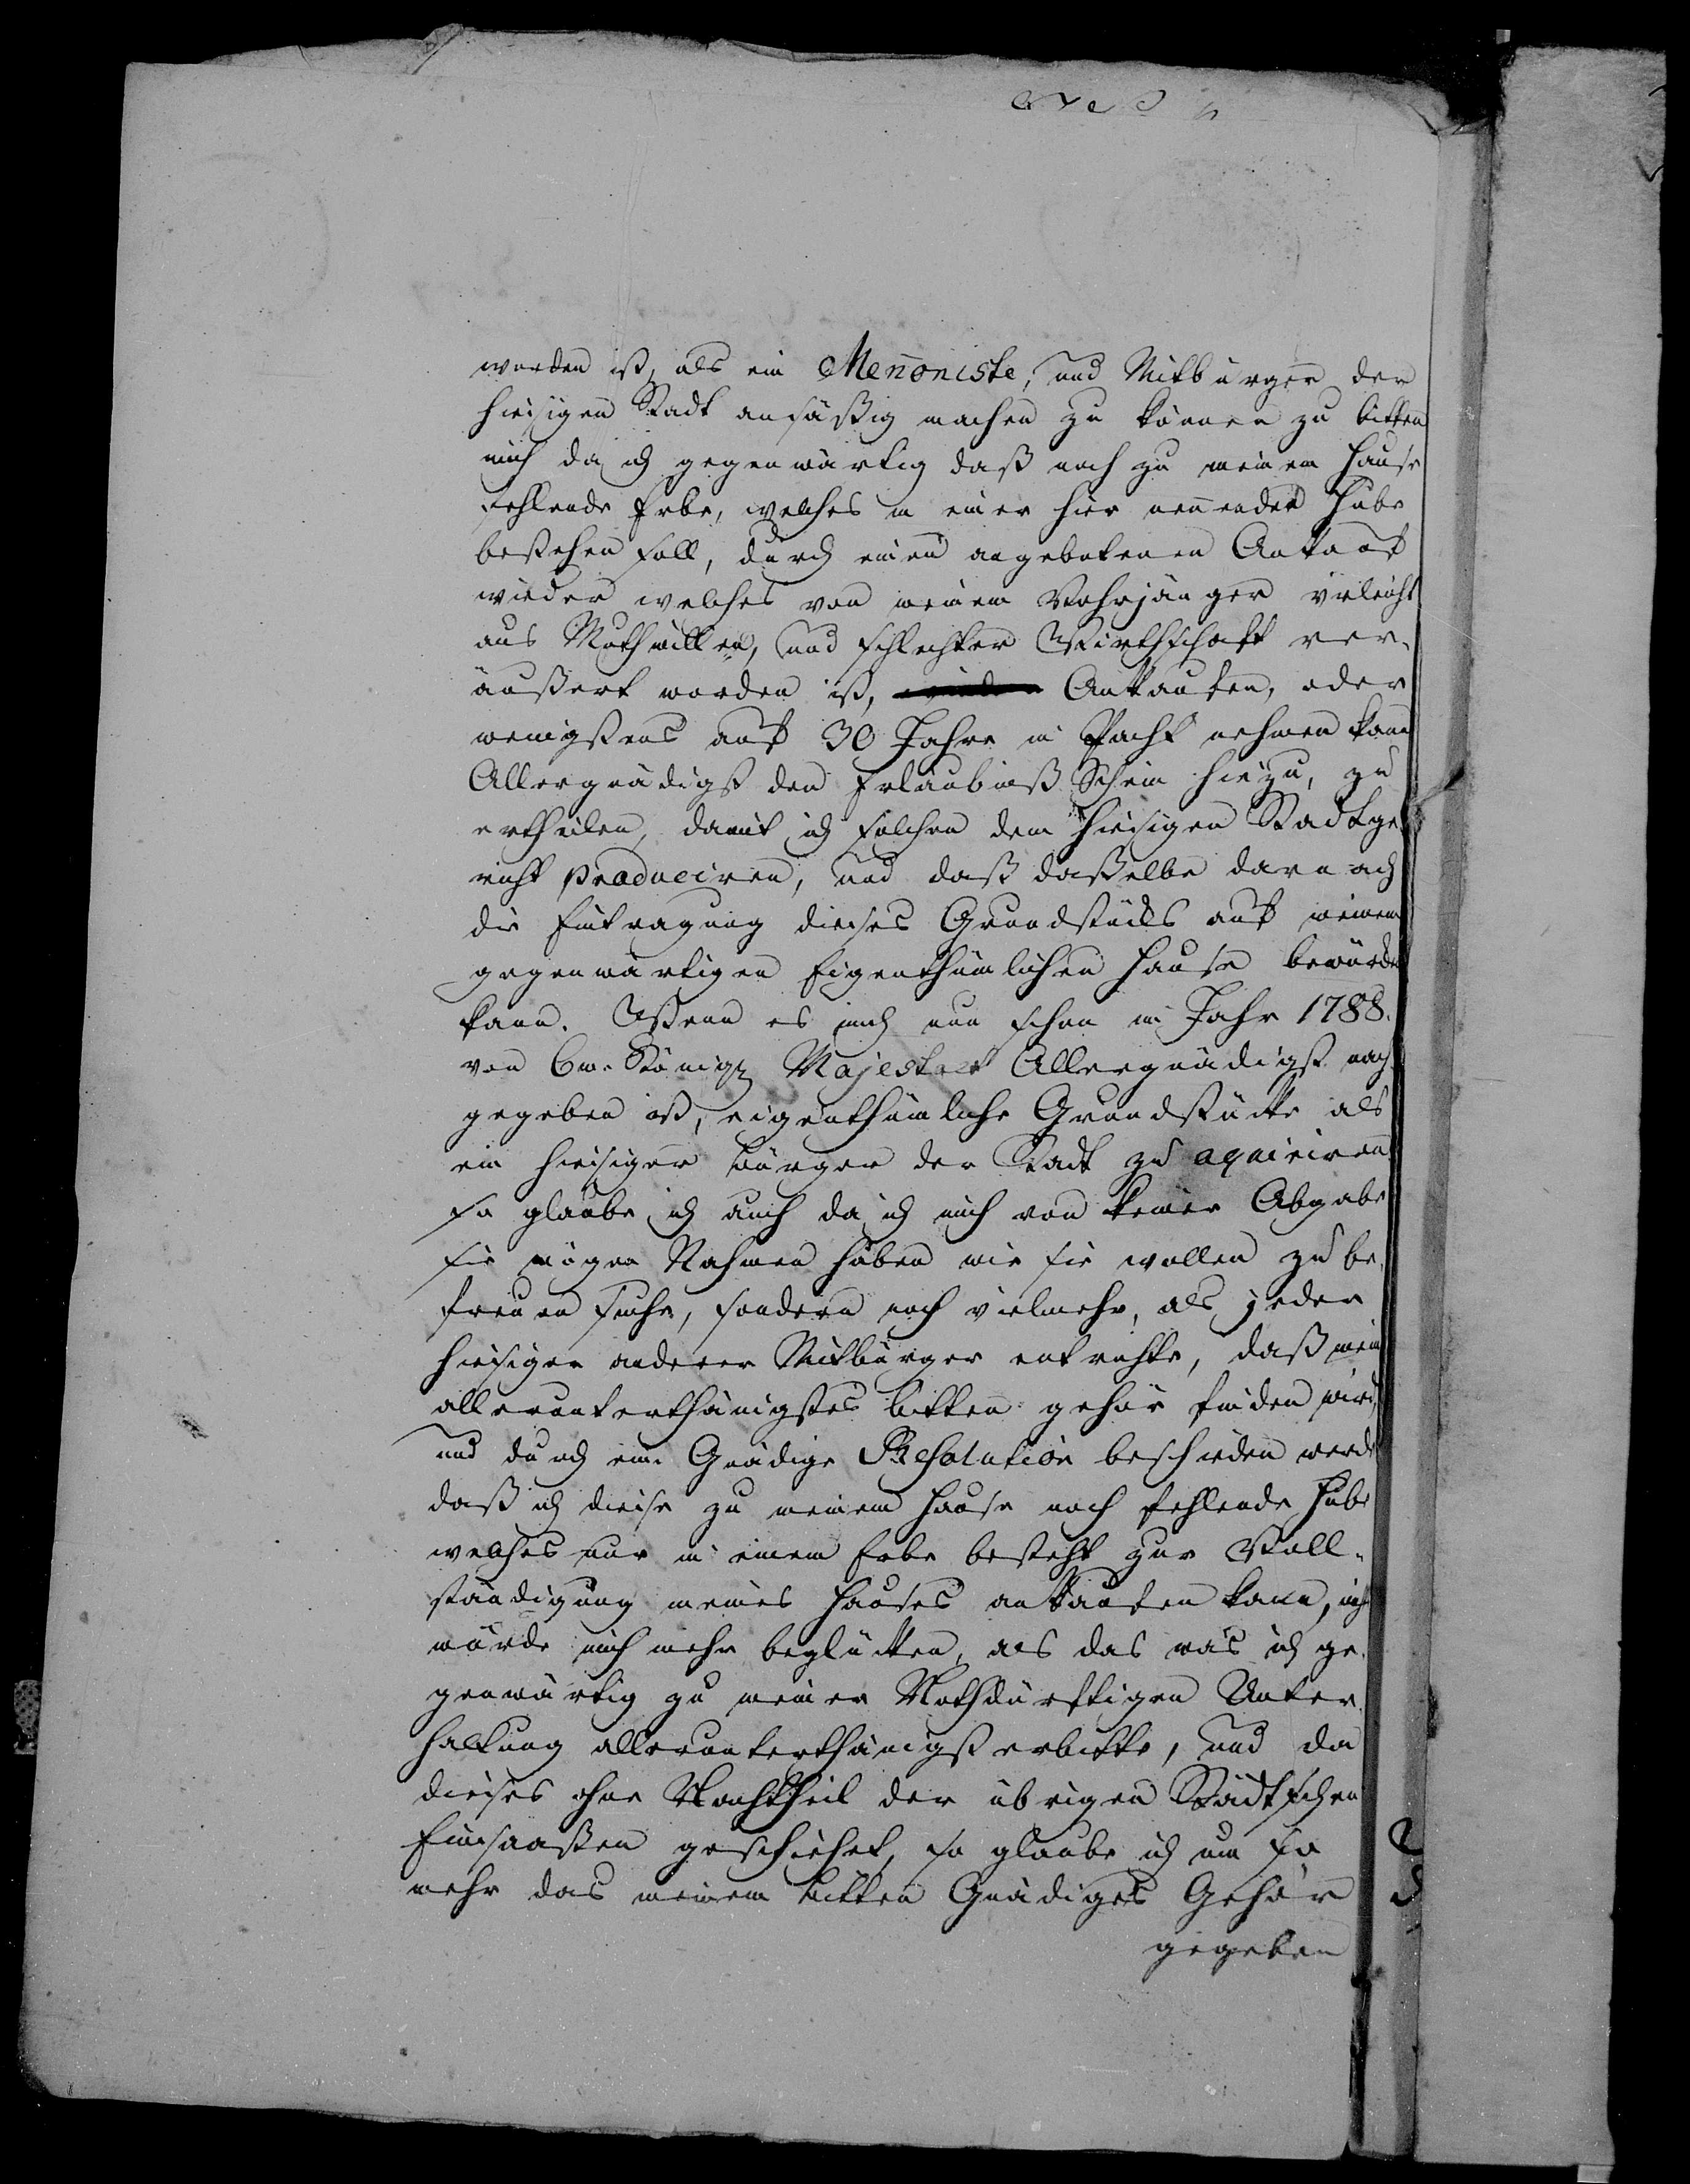 worden ist, als ein Menoniste, und Mitbürger der
hiesigen Stadt ansäßig machen zu können zu bitten
mich da ich gegenwärtig daß noch zu meinem Hause
fehlende Erbe, welches in einer hier nennender Hube
bestehen soll, durch einen angebotenen Ankauf
wieder welches von meinem Vohrjänger vieleicht
aus Muthwillen, und schlechter Wirthschaft ver-
äußert worden ist, Ankaufen, oder
wenigstens auf 30 Jahre in Pacht nehmen kann
Allergnädigst den Erlaubniß Schein hiezu, zu
ertheilen, damit ich solchen dem hiesigen Stadtge
richt produciren, und daß daßelbe darnach
die Eintragung dieses Grundstücks auf meinem
gegenwärtigen Eigenthümlichen Hause bewürden
kann. Wenn es mich nun schon im Jahr 1788.
von Ew. Königl Majestaet Allergnädigst nach
gegeben ist, eigenthümliche Grundstücke als
ein hiesiger bürger der Stadt zu aquiriren
so glaube ich auch da ich mich von keiner Abgabe
sie mögen Nahmen haben wie sie wollen zu be-
freyen suche, sondern noch vielmehr, als jeder
hiesiger anderer Mitbürger entrichte, daß mein
allerunterthänigstes bitten gehör finden wird,
und durch eine Gnädige Resolution beschieden werde
daß ich diese zu meinem Hause noch fehlende Hube
welches nur in einem Erbe besteht zur Voll-
ständigung meines Hauses ankaufen kann, nichts
würde mich mehr beglücken, als das was ich ge-
genwärtig zu meiner Nothdürftigen Unter
haltung allerunterthänigst erbitte, und da
dieses ohne Nachtheil der übrigen Städtschen
Einsaaßen geschiehet, so glaube ich um so
mehr das meinem bitten Gnädiges Gehör
gegeben